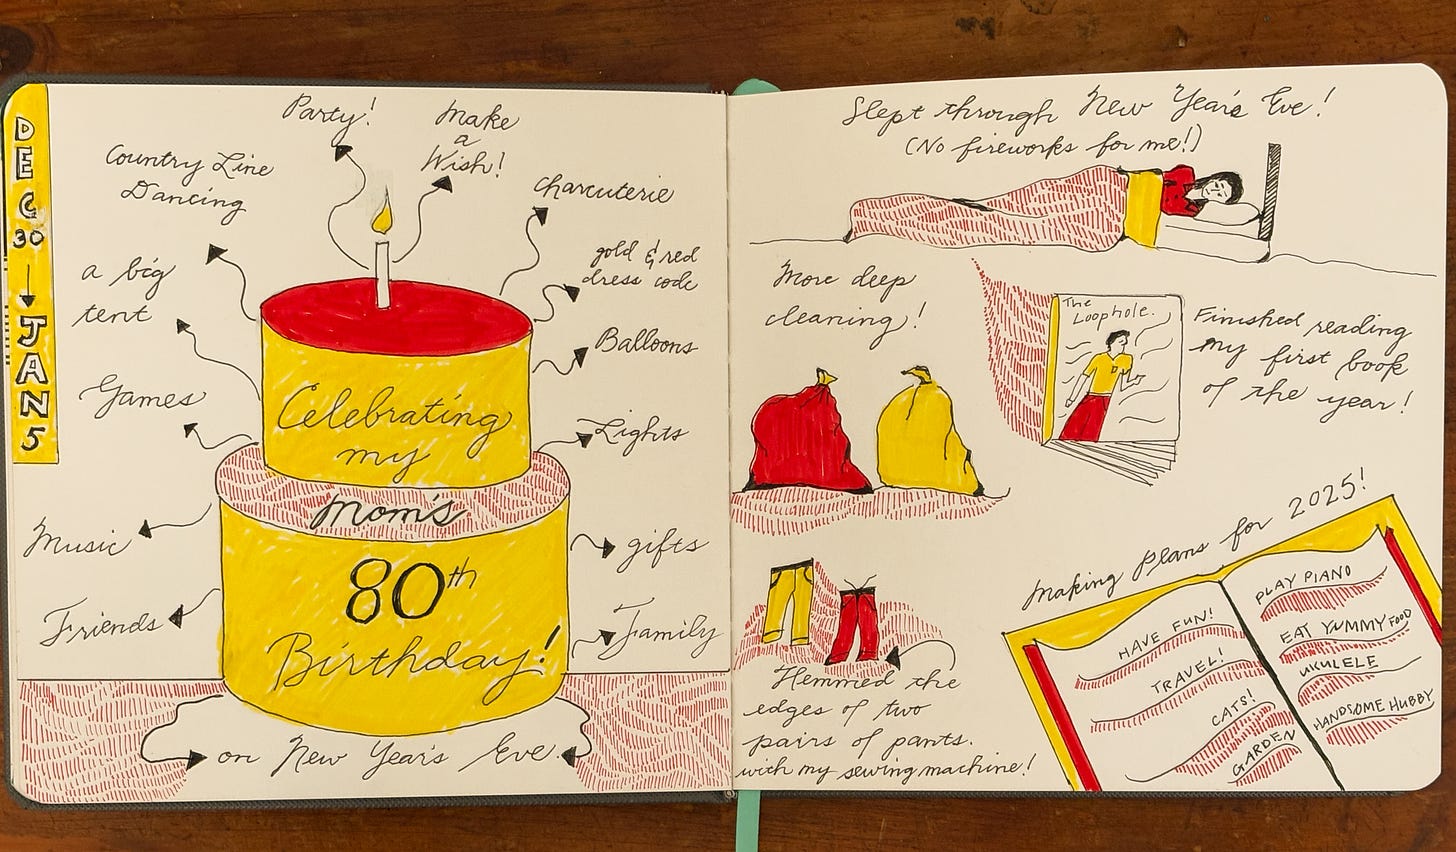 DEC
30
JAN
5
Party!
Make
a
Wish!
Country Line
Dancing
Charcuterie
a big
tent
gold & red
dress code
Games
Balloons
Lights
Music
gifts
Friends
Family
Celebrating
my
Mom's
80th
Birthday!
on New Year's Eve.
Slept through New Year's Eve!
(No fireworks for me!)
More deep
cleaning!
The
Loophole.
Finished reading
my first book
of the year!
Hemmed the
edges of two
pairs of pants.
with my sewing machine!
Making plans for 2025!
HAVE FUN!
TRAVEL!
CATS!
GARDEN
PLAY PIANO
EAT YUMMY FOOD
UKULELE
HANDSOME HUBBY